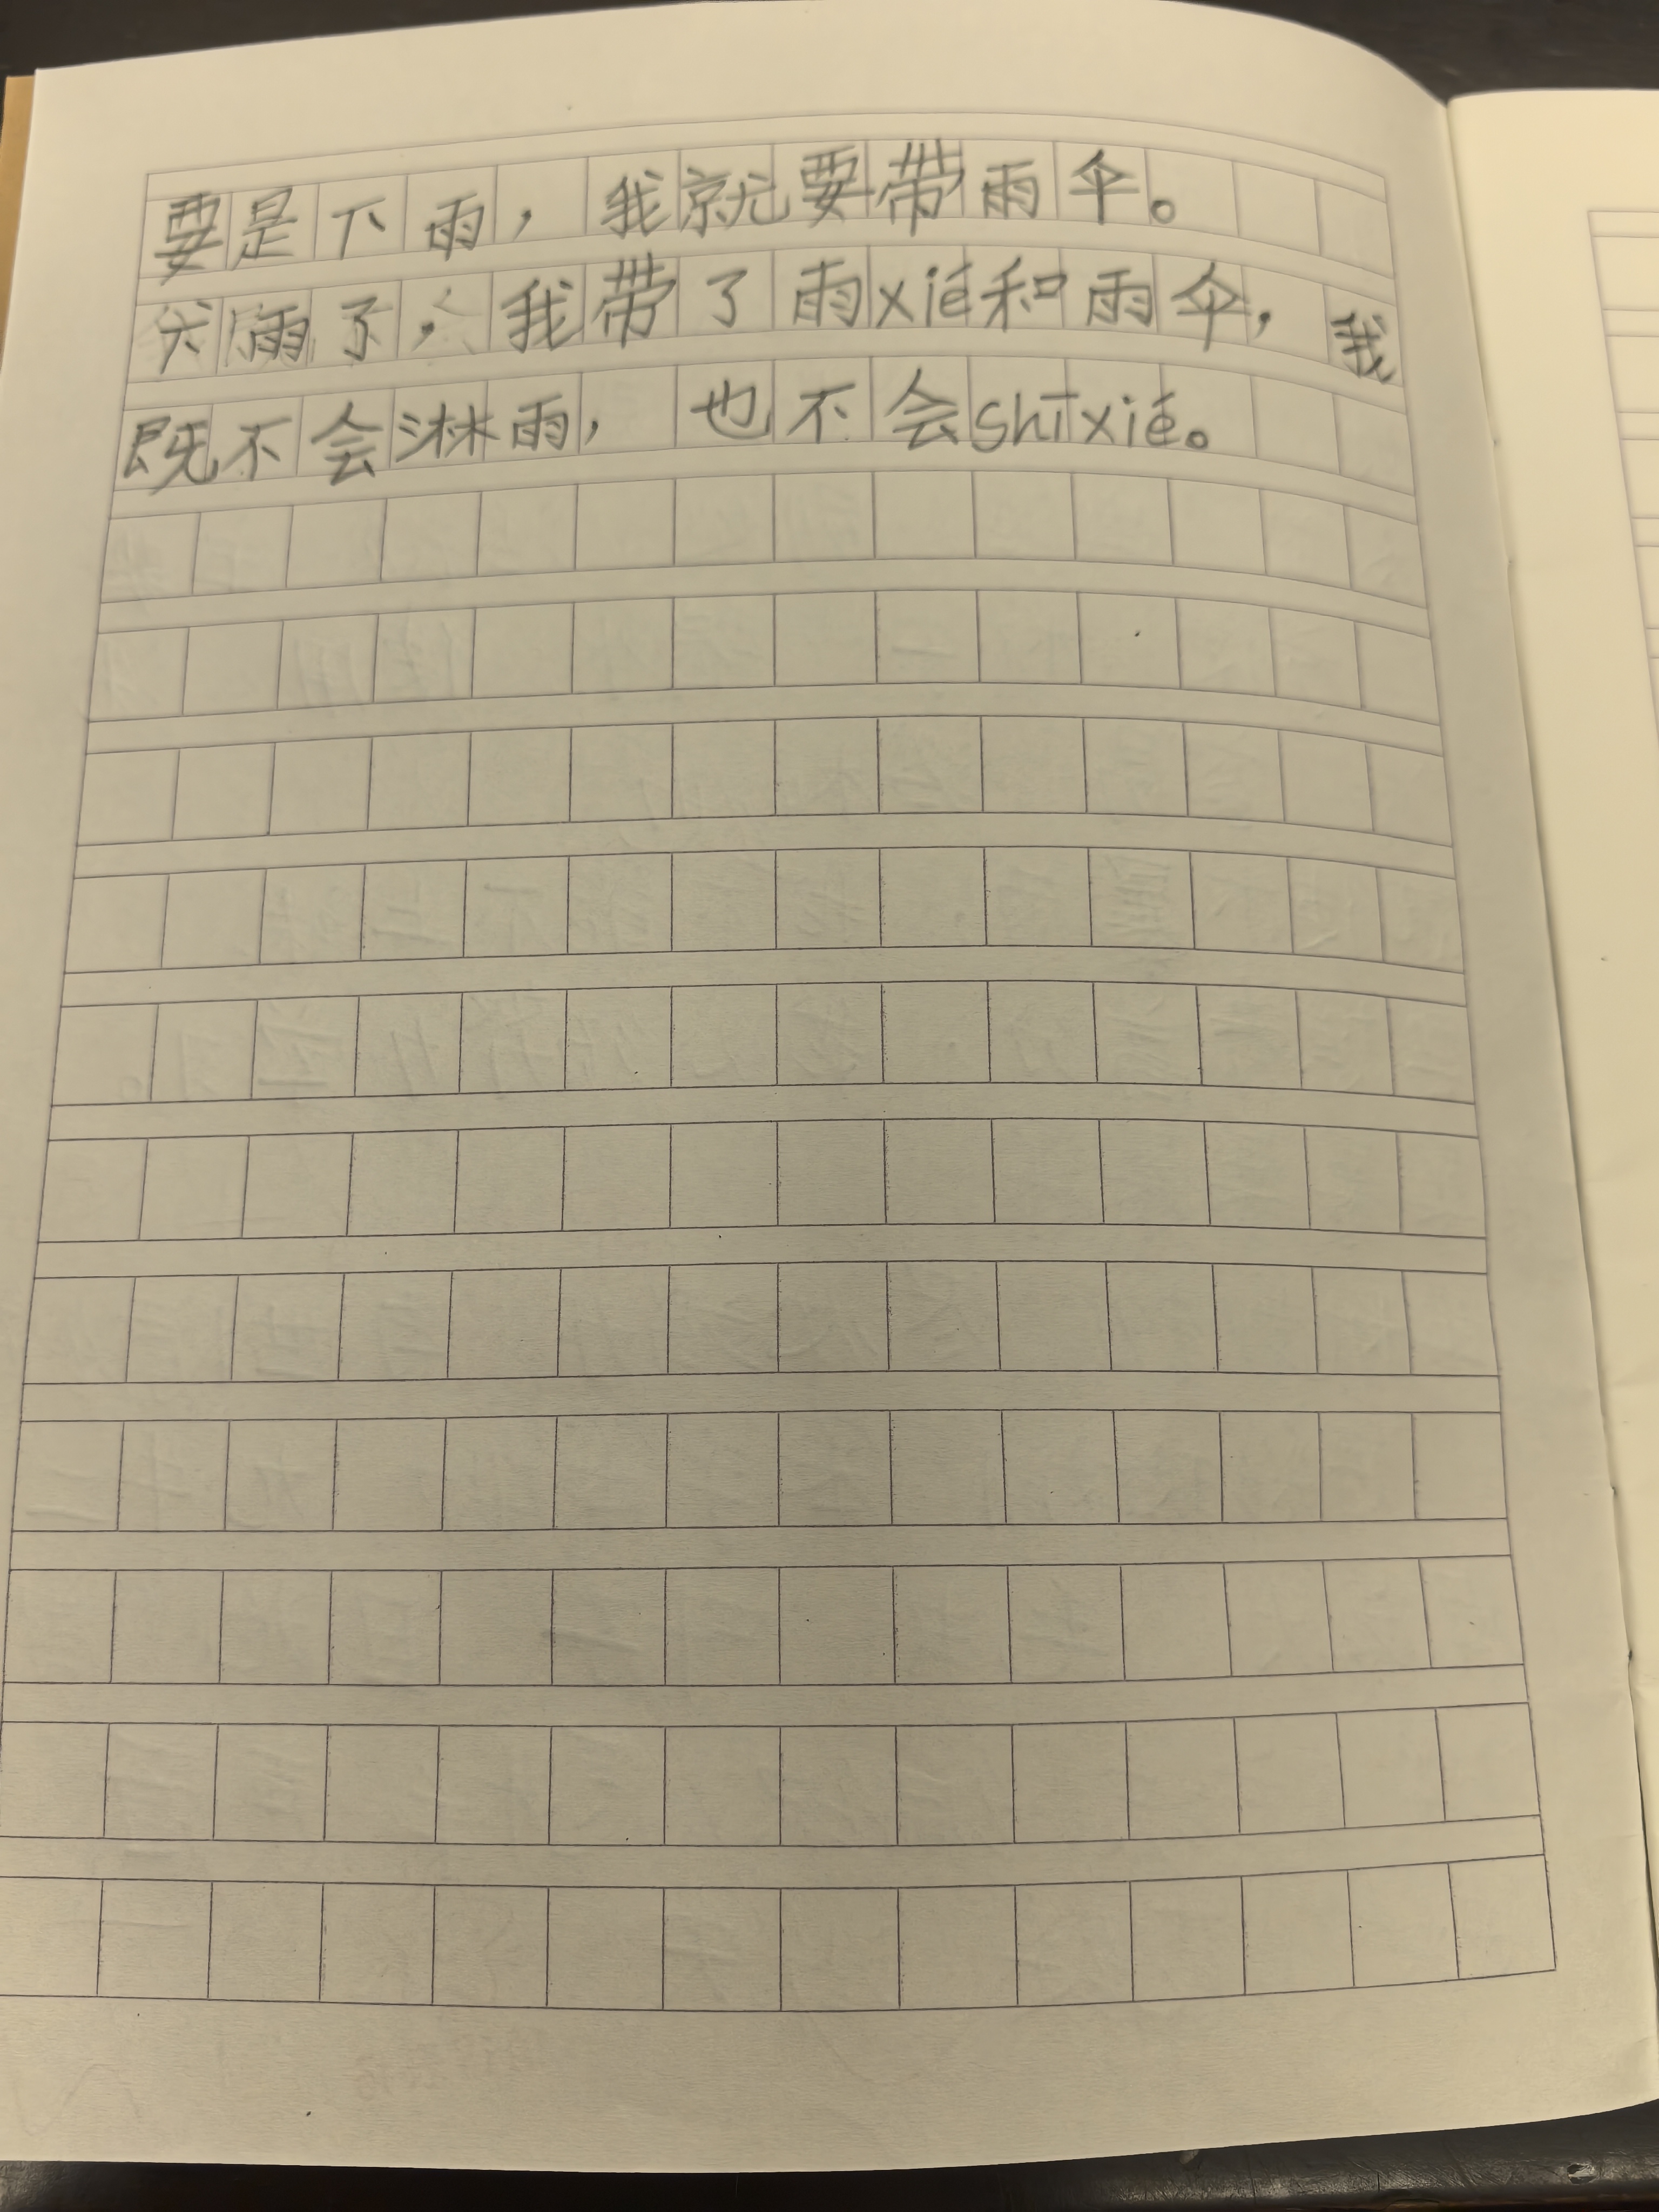 要是下雨，我就要带雨伞。
雨了，我带了雨xié和雨伞，我
既不会淋雨，也不会shīxié。